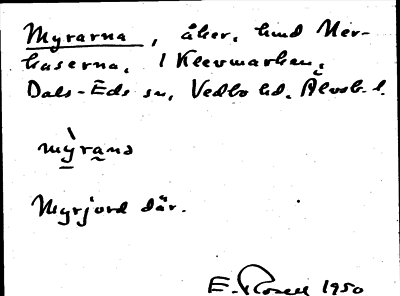 Myrarna, åker, hmd Ner-
kaserna, 1 Klevmarken,
Dals-Eds sn, Vedbo hd. Älvsb. l.
mỳrąnạ
Myrjord där.
E. Rosell 1950